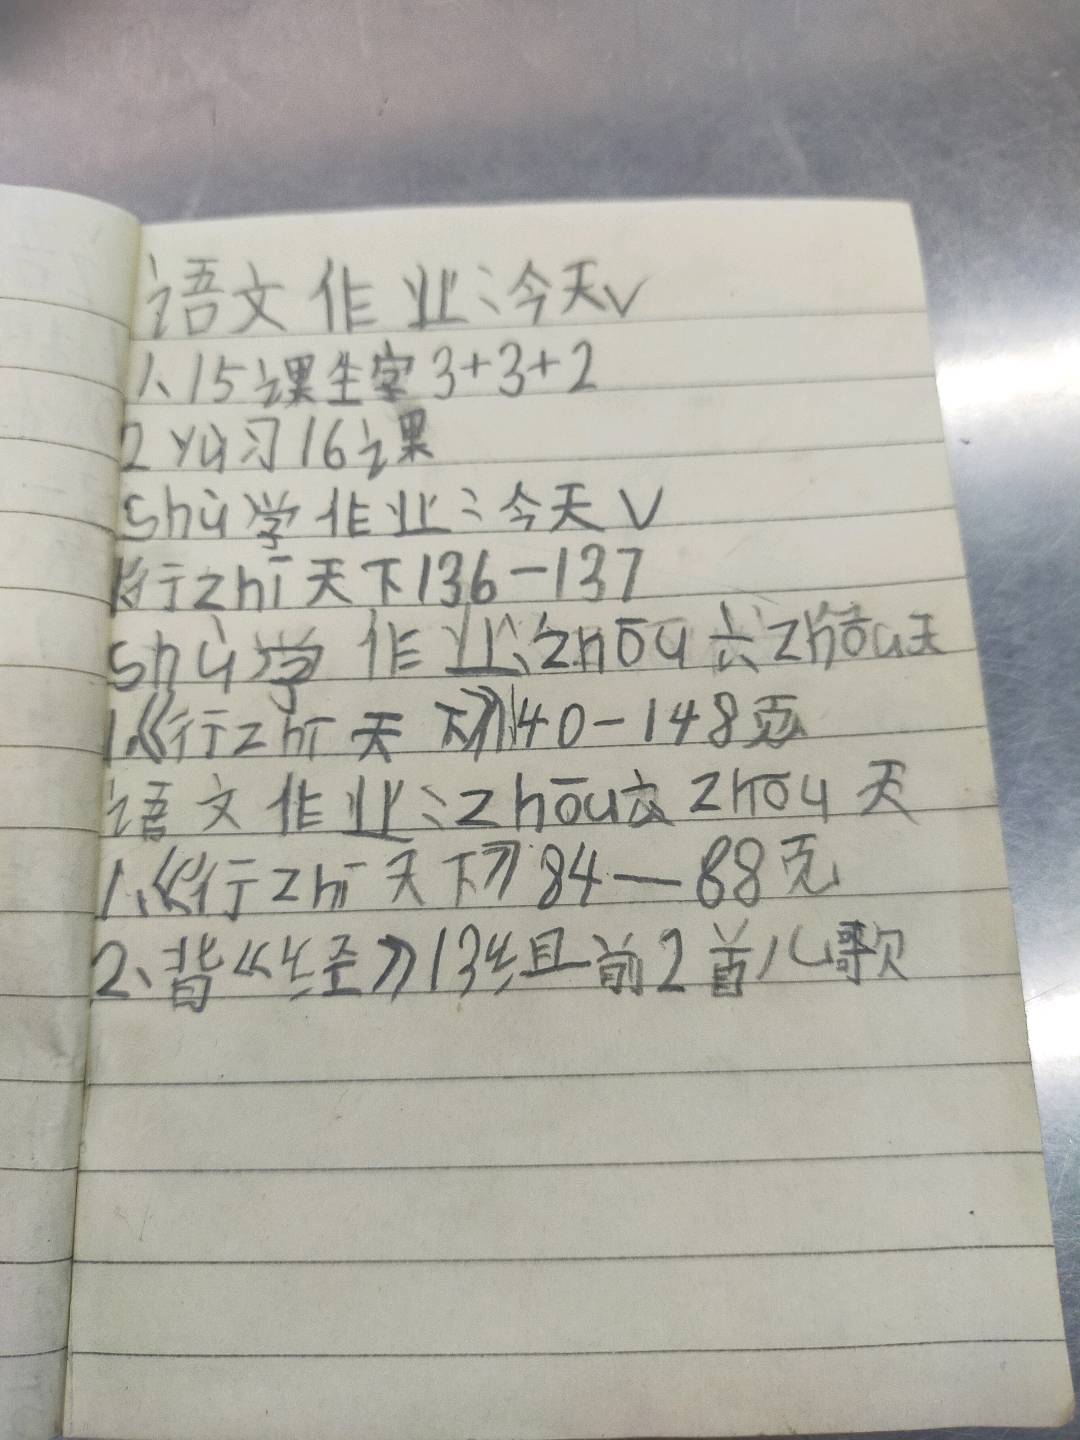 语文作业:今天√
1、15课生字3+3+2
2 yù习16课
shù学作业:今天√
《行zhī天下136-137
shù学作业:zhōu六zhōu天
1.《行zhī天下》140-148页
语文作业:zhōu六zhōu天
1.《行zhī天下》84—88页
2、背《经》13组前2首儿歌